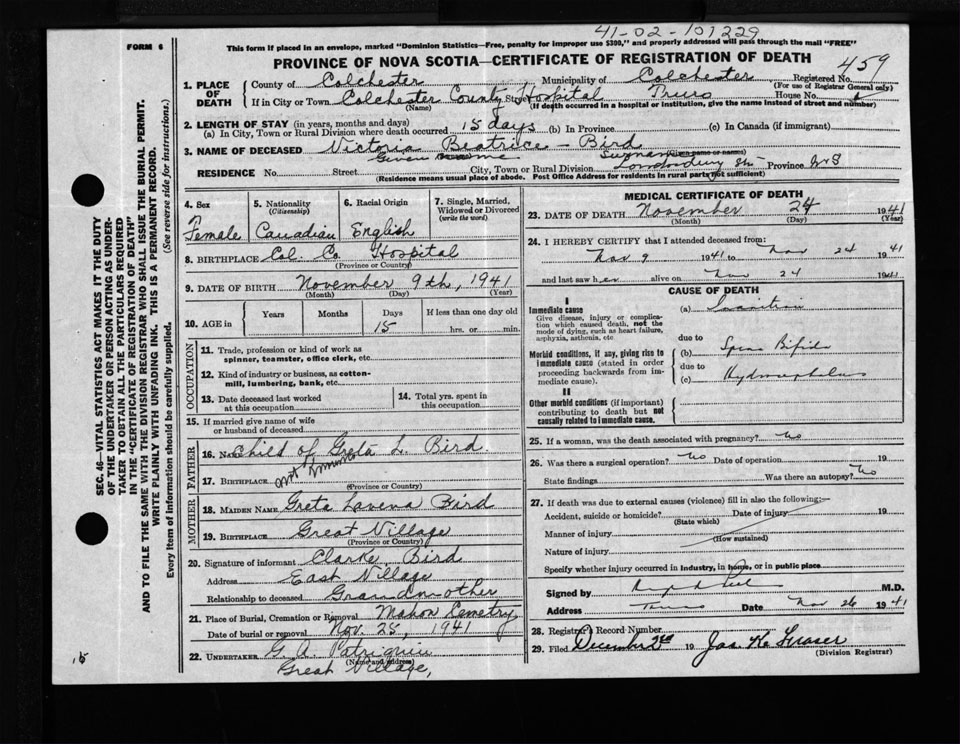 41-02-101229
FORM 6
This form if placed in an envelope, marked "Dominion Statistics—Free, penalty for improper use $300," and properly addressed will pass through the mail "FREE"
PROVINCE OF NOVA SCOTIA—CERTIFICATE OF REGISTRATION OF DEATH
459
1. PLACE OF DEATH
County of Colchester Municipality of Colchester Registered No.
(For use of Registrar General only)
If in City or Town Colchester County Street Hospital Truro House No.
(Name) (If death occurred in a hospital or institution, give the name instead of street and number)
2. LENGTH OF STAY (in years, months and days)
(a) In City, Town or Rural Division where death occurred 15 days (b) In Province (c) In Canada (if immigrant)
3. NAME OF DECEASED Victoria Beatrice - Bird
Given name Surname
RESIDENCE No. Street City, Town or Rural Division Province N.S
(Residence means usual place of abode. Post Office Address for residents in rural parts not sufficient)
4. Sex
Female
5. Nationality (Citizenship)
Canadian
6. Racial Origin
English
7. Single, Married, Widowed or Divorced (write the word)
8. BIRTHPLACE Col. Co. Hospital
(Province or Country)
9. DATE OF BIRTH November 9th, 1941
(Month) (Day) (Year)
10. AGE in Years Months Days If less than one day old
15 hrs. or min.
OCCUPATION
11. Trade, profession or kind of work as spinner, teamster, office clerk, etc.
12. Kind of industry or business, as cotton-mill, lumbering, bank, etc.
13. Date deceased last worked at this occupation
14. Total yrs. spent in this occupation
15. If married give name of wife or husband of deceased
FATHER
16. Name Child of Greta L. Bird
17. BIRTHPLACE not known
(Province or Country)
MOTHER
18. MAIDEN NAME Greta Lavena Bird
19. BIRTHPLACE Great Village
(Province or Country)
20. Signature of informant Clarke Bird
Address East Village
Relationship to deceased Grandmother
21. Place of Burial, Cremation or Removal Mahon Cemetry
Date of burial or removal Nov. 25, 1941
22. UNDERTAKER G. A. Patriquin
(Name and address)
Great Village,
MEDICAL CERTIFICATE OF DEATH
23. DATE OF DEATH November 24 1941
(Month) (Day) (Year)
24. I HEREBY CERTIFY that I attended deceased from:
Nov 9 1941 to Nov 24 1941
and last saw her alive on Nov 24 1941
CAUSE OF DEATH
I
Immediate cause
Give disease, injury or complication which caused death, not the mode of dying, such as heart failure, asphyxia, asthenia, etc
(a) Inanition
due to
Morbid conditions, if any, giving rise to immediate cause (stated in order proceeding backwards from immediate cause).
(b) Spina Bifida
due to
(c) Hydrocephalus
II
Other morbid conditions (if important) contributing to death but not causally related to immediate cause.
25. If a woman, was the death associated with pregnancy? No
26. Was there a surgical operation? No Date of operation 19
State findings Was there an autopsy? No
27. If death was due to external causes (violence) fill in also the following:—
Accident, suicide or homicide? Date of injury 19
(State which)
Manner of injury
(How sustained)
Nature of injury
Specify whether injury occurred in industry, in home, or in public place
Signed by M.D.
Address Truro Date Nov 26 1941
28. Registrar's Record Number
29. Filed December 2nd 19 Jas. K. Fraser
(Division Registrar)
SEC. 46—VITAL STATISTICS ACT MAKES IT THE DUTY
OF THE UNDERTAKER OR PERSON ACTING AS UNDERTAKER TO OBTAIN ALL THE PARTICULARS REQUIRED
IN THE "CERTIFICATE OF REGISTRATION OF DEATH"
AND TO FILE THE SAME WITH THE DIVISION REGISTRAR WHO SHALL ISSUE THE BURIAL PERMIT.
WRITE PLAINLY WITH UNFADING INK. THIS IS A PERMANENT RECORD.
Every item of Information should be carefully supplied. (See reverse side for instructions.)
15